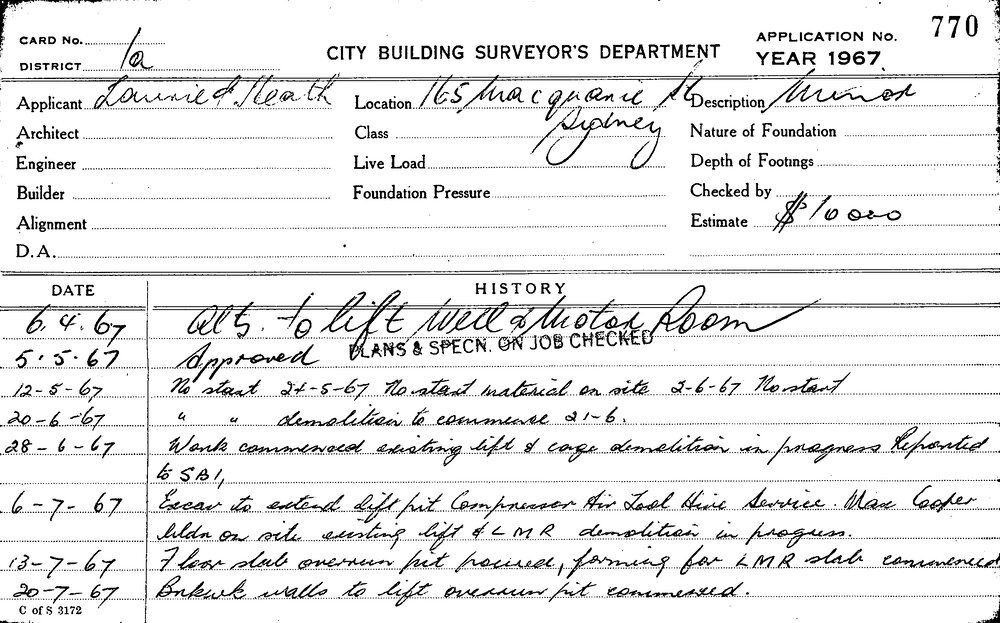 770
CARD No. 1a APPLICATION No.
DISTRICT CITY BUILDING SURVEYOR'S DEPARTMENT YEAR 1967
Applicant Laurie & Heath Location 165 Macquarie St Description Minor
Architect Class Sydney Nature of Foundation
Engineer Live Load Depth of Footings
Builder Foundation Pressure Checked by
Alignment Estimate $10000
D.A.
DATE HISTORY
6.4.67 Alts. to lift Well & Motor Room
5.5.67 Approved PLANS & SPECN. ON JOB CHECKED
12-5-67 No start 24-5-67 No start material on site 2-6-67 No start
20-6-67 " " demolition to commence 21-6.
28-6-67 Work commenced existing lift & cage demolition in progress Reported
to SBI,
6-7-67 Excav to extend lift pit Compressor Air Tool Hire Service. Max Cooper
bldr on site existing lift & LMR demolition in progress.
13-7-67 Floor slab overrun pit poured, forming for LMR slab commenced
20-7-67 Brkwk walls to lift overrun pit commenced.
C of S 3172